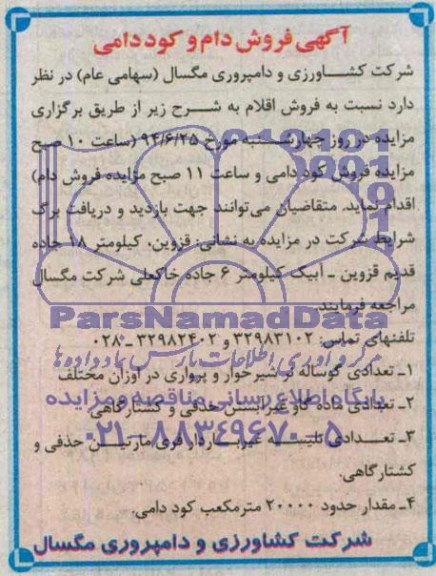 آگهی فروش دام و کود دامی
شرکت کشاورزی و دامپروری مگسال (سهامی عام) در نظر
دارد نسبت به فروش اقلام به شرح زیر از طریق برگزاری
مزایده در روز چهارشنبه مورخ ۹۴/۶/۲۵ (ساعت ۱۰ صبح
مزایده فروش کود دامی و ساعت ۱۱ صبح مزایده فروش دام)
اقدام نماید. متقاضیان می‌توانند جهت بازدید و دریافت برگ
شرایط شرکت در مزایده به نشانی: قزوین، کیلومتر ۱۸ جاده
قدیم قزوین - آبیک کیلومتر ۶ جاده خاکعلی شرکت مگسال
مراجعه فرمایند.
ParsNamadData
تلفنهای تماس: ۳۲۹۸۳۱۰۲ و ۳۲۹۸۲۴۰۲ -۰۲۸
مرکز فرآوری اطلاعات پارس نماد داده‌ها
۱- تعدادی گوساله نر شیرخوار و پرواری در اوزان مختلف
پایگاه اطلاع رسانی مناقصه و مزایده
۲- تعدادی ماده گاو غیرآبستن حذفی و کشتارگاهی
۰۲۱-۸۸۳۴۹۶۷۰-۵
۳- تعدادی تلیسه غیر فری مارتین حذفی و
کشتارگاهی.
۴- مقدار حدود ۲۰۰۰۰ مترمکعب کود دامی.
شرکت کشاورزی و دامپروری مگسال